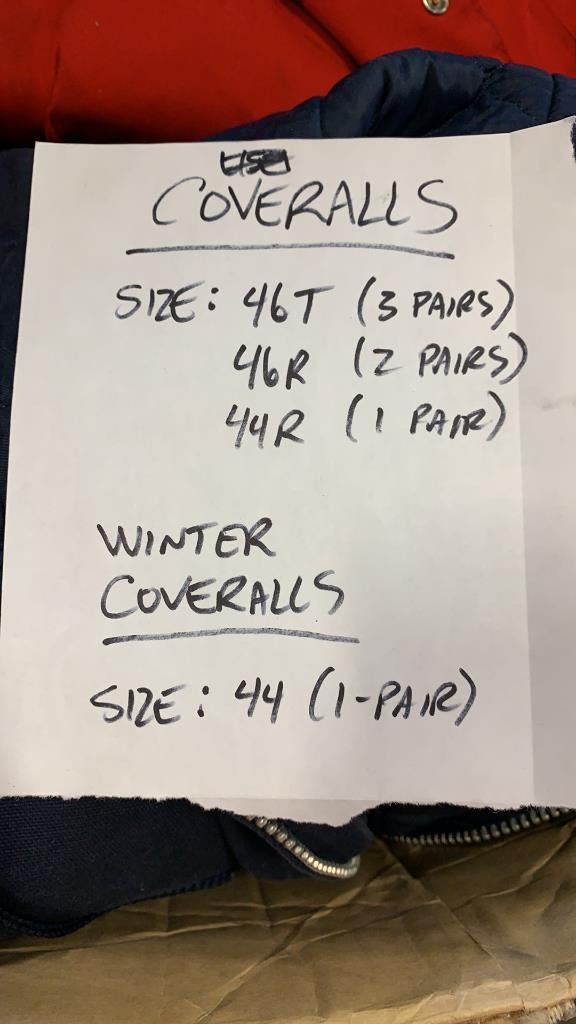 COVERALLS
SIZE: 46T (3 PAIRS)
46R (2 PAIRS)
44R (1 PAIR)
WINTER
COVERALLS
SIZE: 44 (1-PAIR)